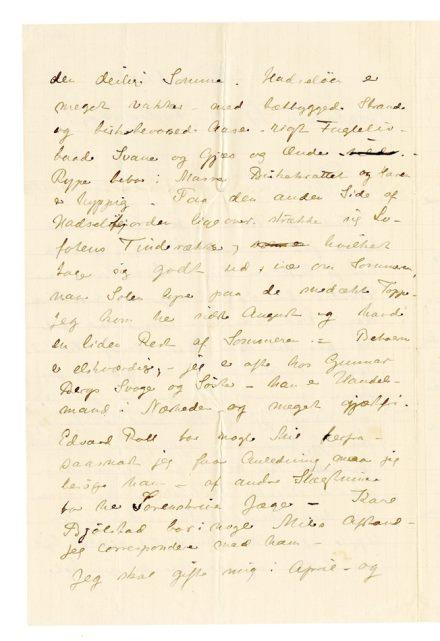 den deilige Sommer. Hadseløen er
meget vakker – med bebyggede Strande
og birkebevoxede Aase – rigt Fugleliv –
baade Svane og Gjæs og Ænder
Rype bebor i Masse Birkekrattet og Hare
er hyppig – Paa den anden Side af
Hadselfjorden ligeover strække sig Lo-
fotens Tinderække, hvilket
tage sig godt ud, især om Sommeren,
naar Solen lyse paa de snedækte Toppe.
Jeg kom her sidste August og havde
en liden Rest af Sommeren. – Beboerne
er elskværdige, – jeg er ofte hos Gunnar
Bergs Svoger og Søster – han er Handels-
mand i Nærheden og meget gjæstfri.
Edvard bor nogle Mil herfra –
saasnart jeg faar Anledning, maa jeg
besøge ham – af andre Slægtninge
bor her Sorenskriver – 
Bjölstad bor i nogle Miles Afstand –
jeg correspondere med ham –
Jeg skal gifte mig i April – og